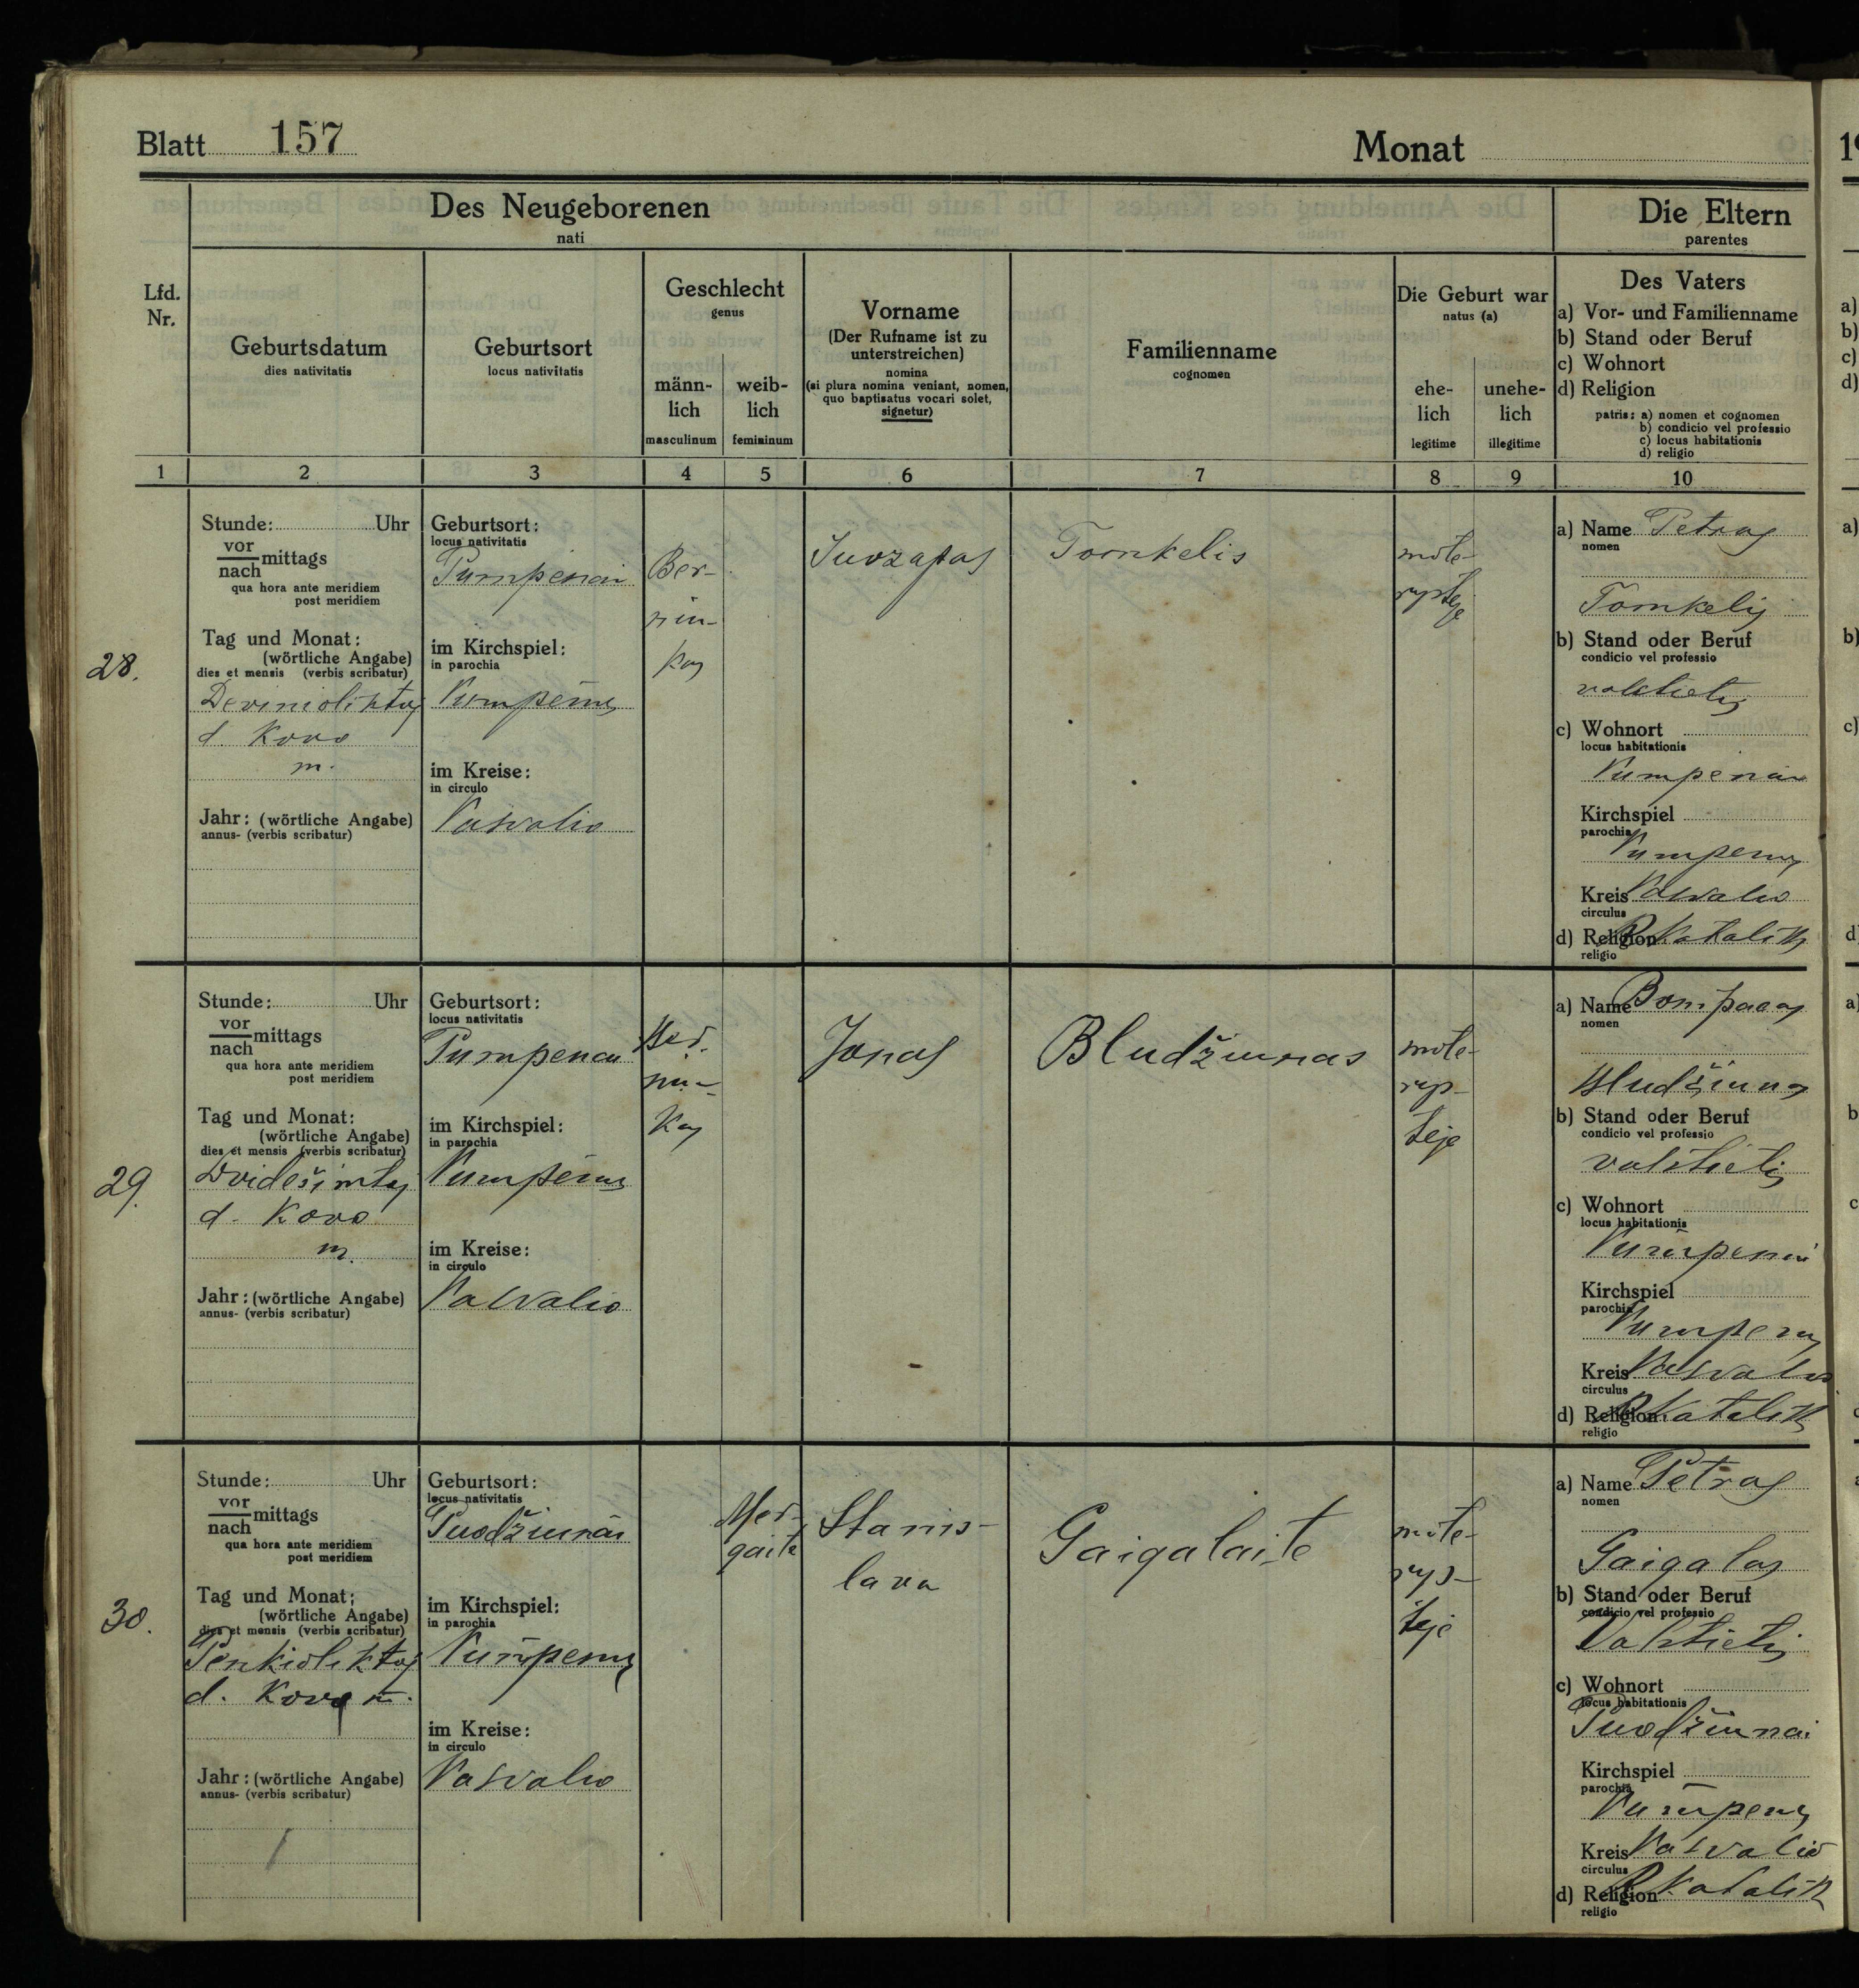 Blatt 157
Monat
Des Neugeborenen
nati
Die Eltern
parentes
Lfd.
Nr.
Geburtsdatum
dies nativitatis
Geburtsort
locus nativitatis
Geschlecht
genus
männ-
lich
masculinum
weib-
lich
femininum
Vorname
(Der Rufname ist zu
unterstreichen)
nomina
(si plura nomina veniant, nomen,
quo baptisatus vocari solet,
signetur)
Familienname
cognomen
Die Geburt war
natus (a)
ehe-
lich
legitime
unehe-
lich
illegitime
Des Vaters
a) Vor- und Familienname
b) Stand oder Beruf
c) Wohnort
d) Religion
patris: a) nomen et cognomen
b) condicio vel professio
c) locus habitationis
d) religio
1 2 3 4 5 6 7 8 9 10
28.
Stunde: Uhr
vor
nach mittags
qua hora ante meridiem
post meridiem
Tag und Monat:
(wörtliche Angabe)
dies et mensis (verbis scribatur)
Devinioliktas
d. Kovo
m.
Jahr: (wörtliche Angabe)
annus- (verbis scribatur)
Geburtsort:
locus nativitatis
Pumpenai
im Kirchspiel:
in parochia
Pumpėnų
im Kreise:
in circulo
Pasvalio
Ber-
niu-
kas
Juozapas
Tomkelis
mote-
rystėje
a) Name Petras
nomen
Tomkelis
b) Stand oder Beruf
condicio vel professio
valstietis
c) Wohnort
locus habitationis
Pumpenai
Kirchspiel
parochia
Pumpenų
Kreis Pasvalio
circulus
d) Religion R Katalik
religio
29.
Stunde: Uhr
vor
nach mittags
qua hora ante meridiem
post meridiem
Tag und Monat:
(wörtliche Angabe)
dies et mensis (verbis scribatur)
Dvidešimtas
d. Kovo
m.
Jahr: (wörtliche Angabe)
annus- (verbis scribatur)
Geburtsort:
locus nativitatis
Pumpenai
im Kirchspiel:
in parochia
Pumpėnų
im Kreise:
in circulo
Pasvalio
Ber-
niu-
kas
Jonas
Bludžiunas
mote-
rys-
tėje
a) Name
nomen
Bludžiunas
b) Stand oder Beruf
condicio vel professio
valstietis
c) Wohnort
locus habitationis
Pumpenai
Kirchspiel
parochia
Pumpenų
Kreis Pasvalio
circulus
d) Religion R Katalik
religio
30.
Stunde: Uhr
vor
nach mittags
qua hora ante meridiem
post meridiem
Tag und Monat:
(wörtliche Angabe)
dies et mensis (verbis scribatur)
Penkioliktas
d. Kovo m.
Jahr: (wörtliche Angabe)
annus- (verbis scribatur)
Geburtsort:
locus nativitatis
Puodžiunai
im Kirchspiel:
in parochia
Pumpenų
im Kreise:
in circulo
Pasvalio
Mer-
gaitė
Stanis-
lava
Gaigalaite
mote-
rys-
tėje
a) Name Petras
nomen
Gaigalas
b) Stand oder Beruf
condicio vel professio
Valstietis
c) Wohnort
locus habitationis
Puodžiunai
Kirchspiel
parochia
Pumpenų
Kreis Pasvalio
circulus
d) Religion R Katalik
religio